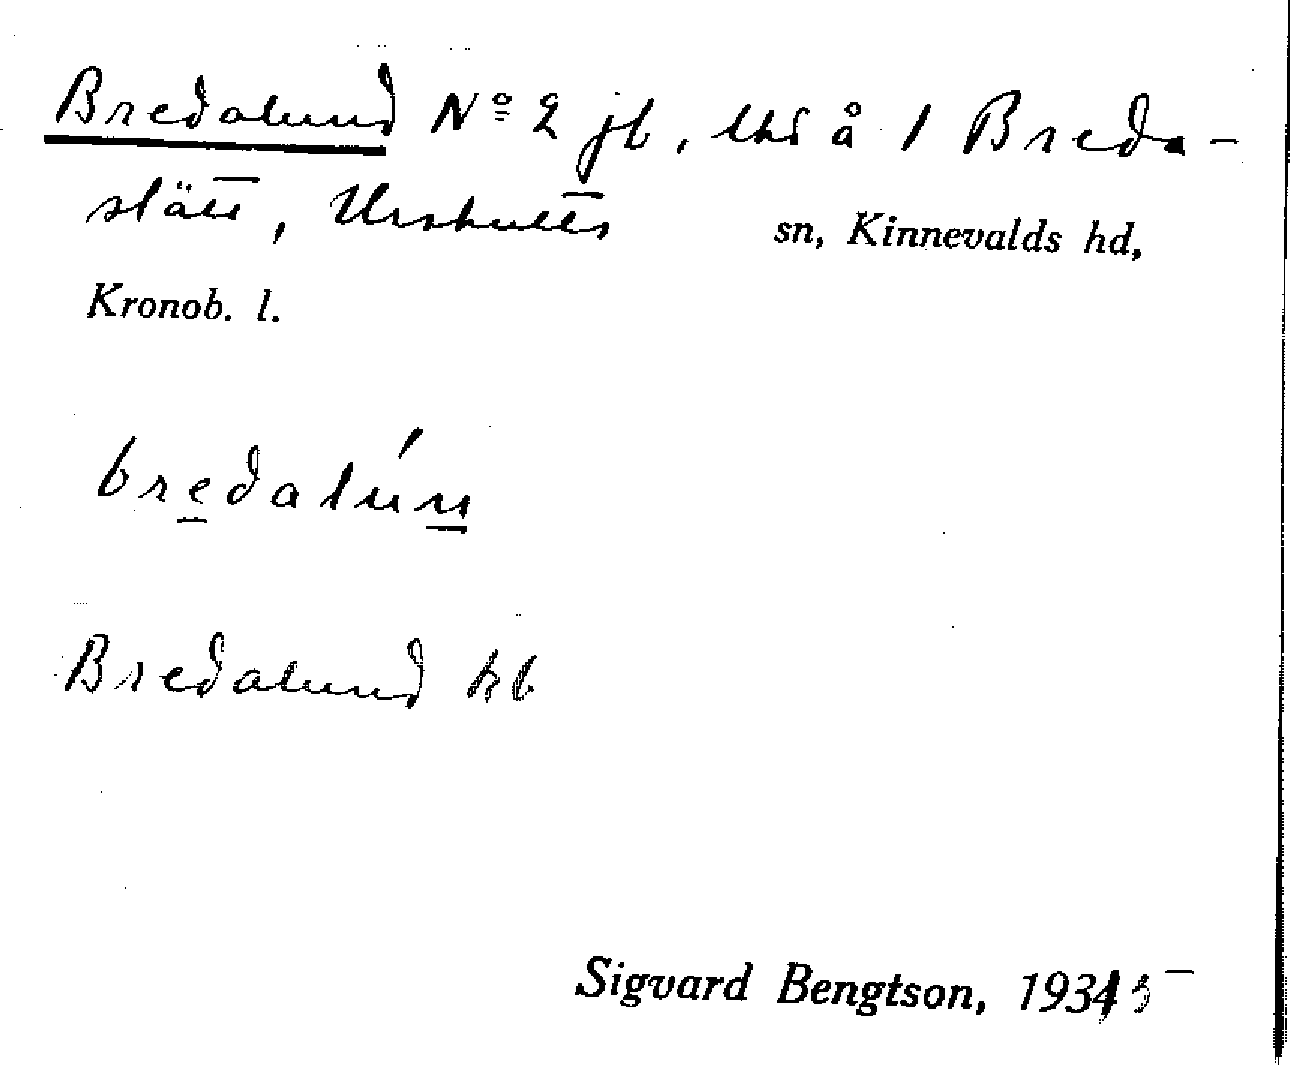 Bredalund Nº 2 jb, lhs å 1 Breda-
slätt, Urshults sn, Kinnevalds hd,
Kronob. l.
bredalún
Bredalund hb
Sigvard Bengtson, 1935